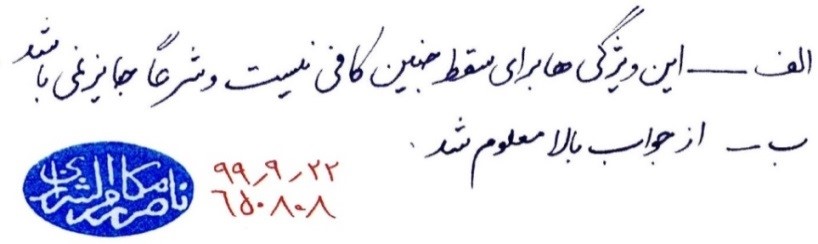 الف ــ این ویژگی ها برای سقط جنین کافی نیست و شرعاً جایز نمی باشد
ب ــ از جواب بالا معلوم شد.
۹۹٫۹٫۲۲
۶۵۰۸۰۸
ناصر مکارم الشیرازی